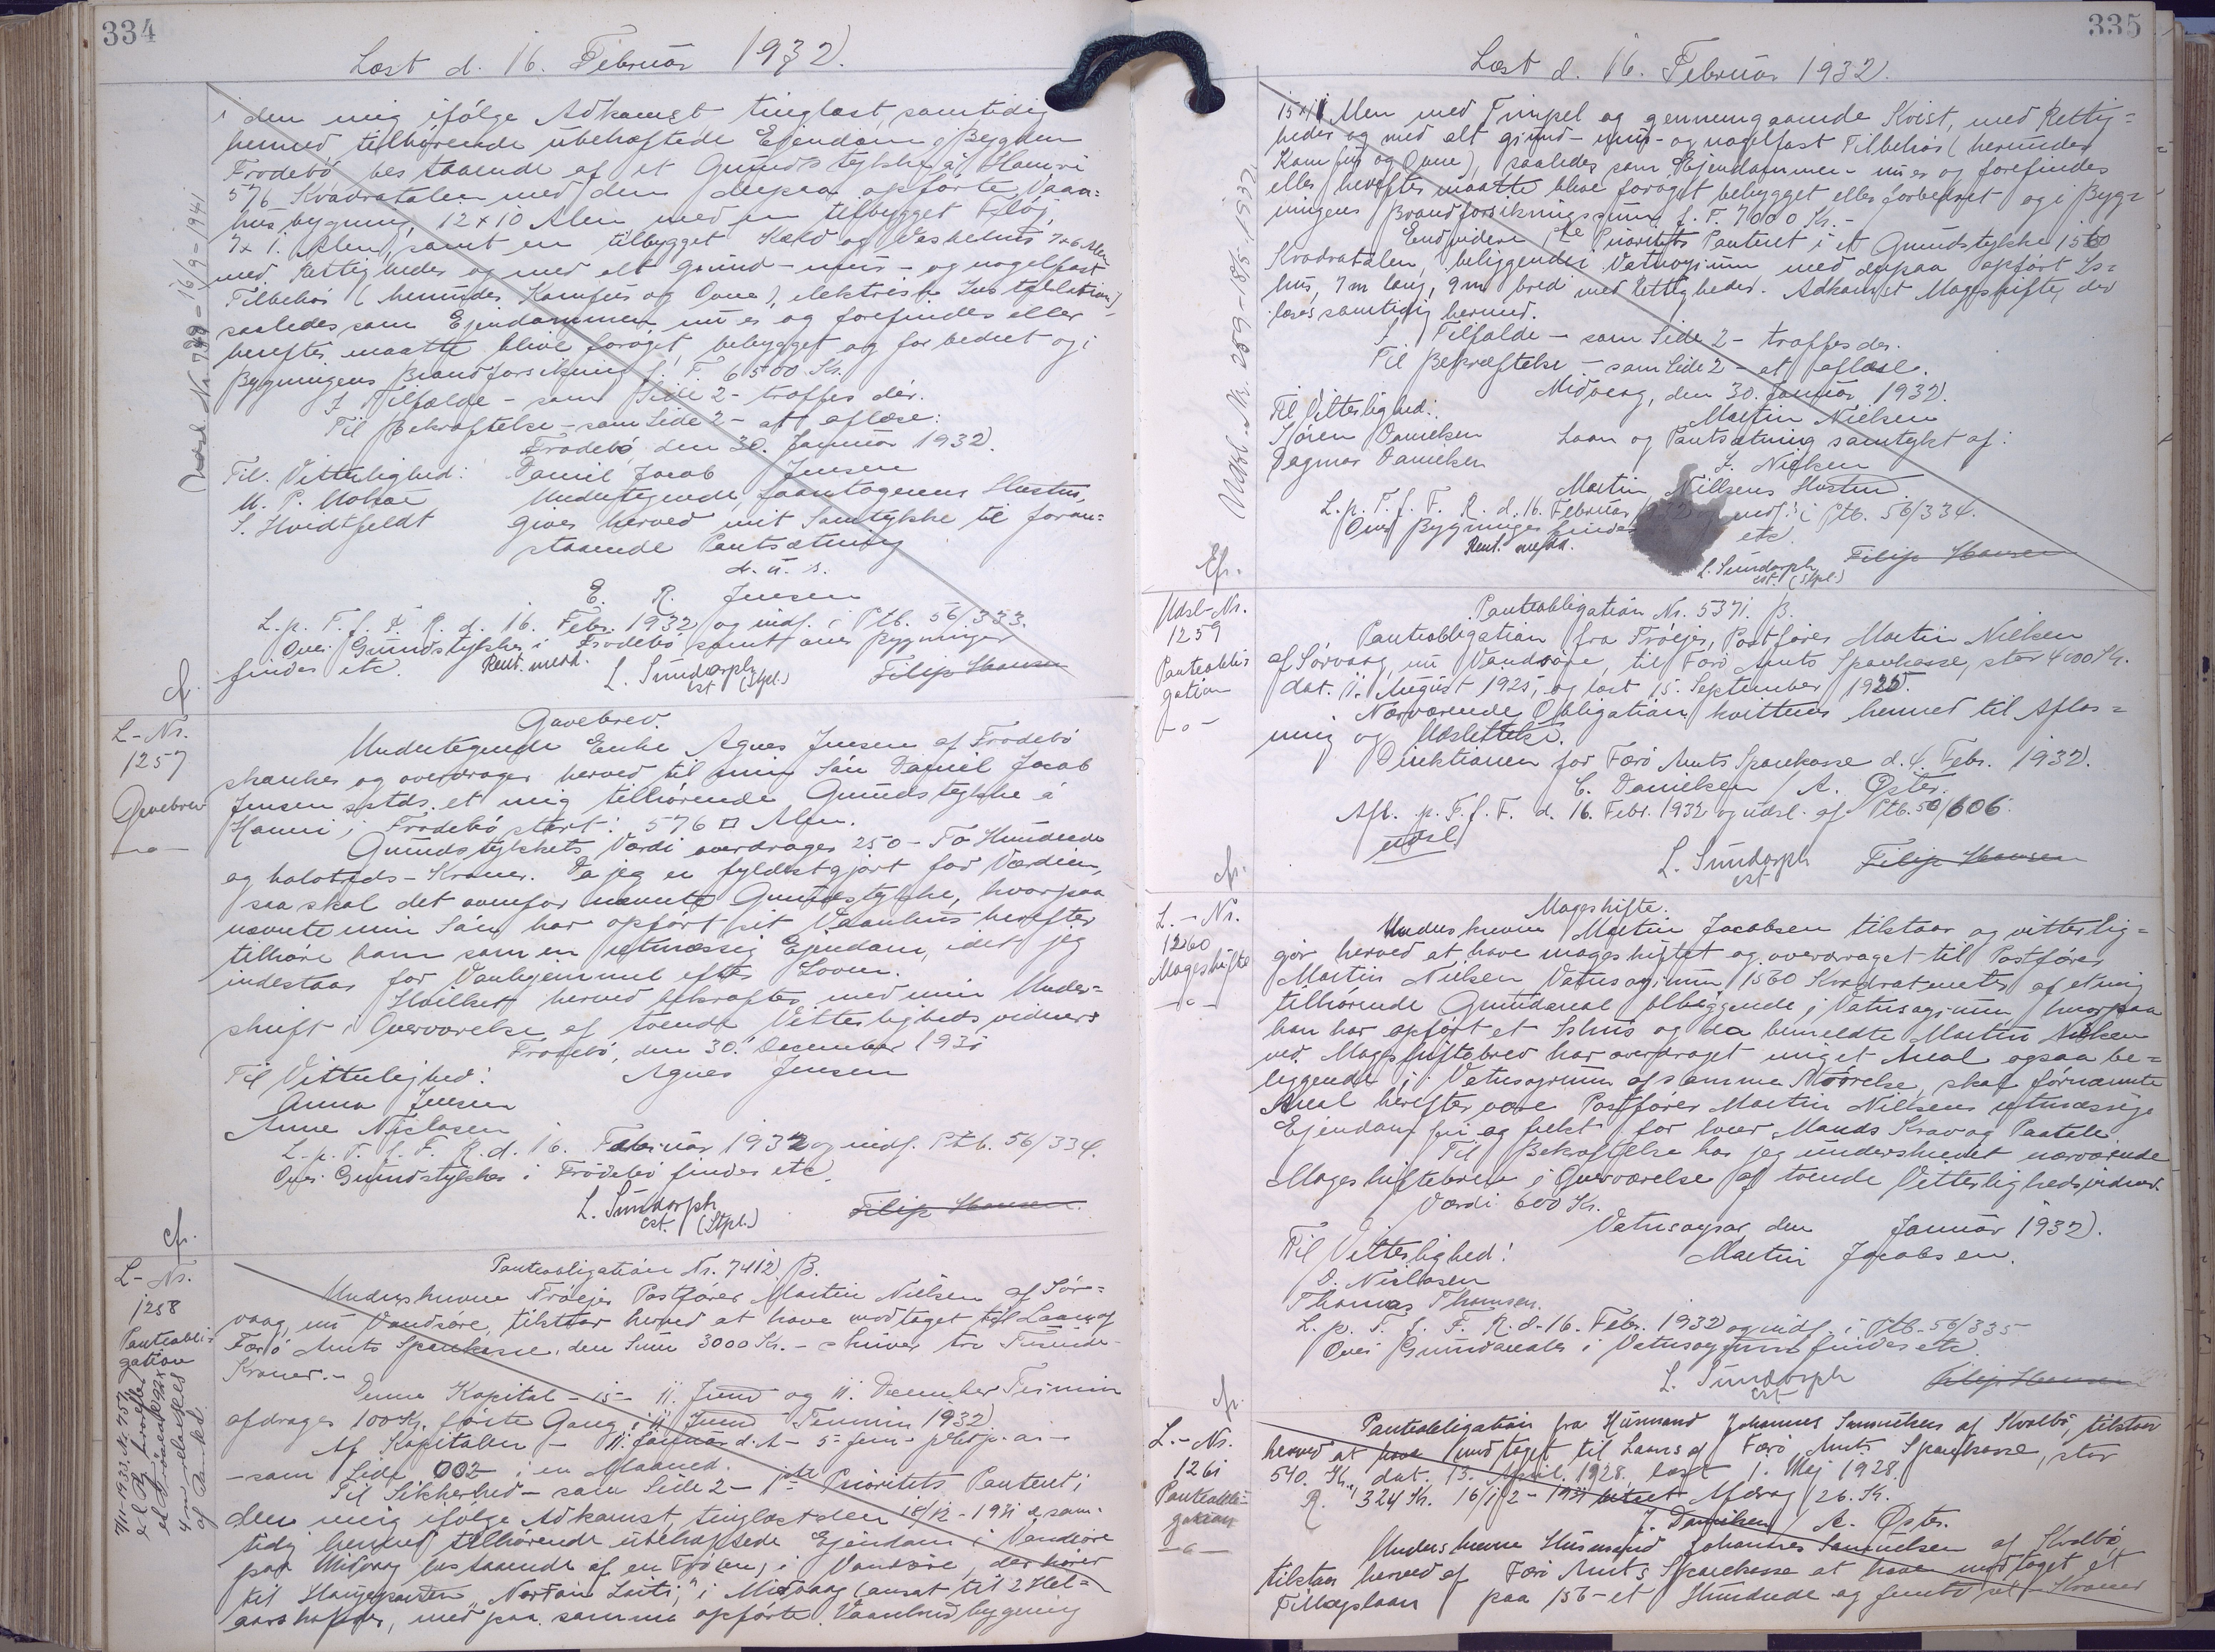 334
Læst d. 16. Februar 1932.
i den mig ifølge Adkomst tinglæst, samtidig
hermed tilhørende ubehæftede Ejendom i Bygden
Frodebö bestaaende af et Grundstykke á Hamri
576 Kvadratalen med den derpaa opførte Vaan-
husbygning, 12 x 10 Alen med en tilbygget Fløj,
7 x 1. Alen, samt en tilbygget Kæld og Vaskehus 7x6 Alen
med Rettigheder og med alt grund- mur- og nagelfast
Tilbehør (herunder Komfur og Ovne), elektrisk Installation,
saaledes som Ejendommen nu er og forefindes eller
herefter maatte blive forøget, bebygget og forbedret og i
Bygningens Brandforsikring f. T. 6500 Kr.
I Tilfælde - som Side 2 - træffes der.
Til Bekræftelse - som Side 2 - at aflæse:
Frodebö, den 30. Januar 1932.
Til Vitterlighed: Daniel Jacob Jensen
M. P. Mohr Undertegnede, Laantagerens Hustru,
S. Hvidtfeldt giver herved mit Samtykke til foran-
staaende Pantsætning
d. u. s.
E. R. Jensen
L. p. T. f. F. R. d. 16. Febr. 1932 og indf. i Ptb. 56/333.
Over Grundstykket i Frodebö samt over Bygninger
findes etc. Rent. medd. L. Sundorph Filip Hansen
cst (Stpl.)
Udsl. Nr. 16/9 - 1941
cf.
L-Nr.
1257
Gavebrev
-o-
Gavebrev.
Undertegnede Enke Agnes Jensen af Frodebö
skænker og overdrager herved til min Sön Daniel Jacob
Jensen sstds. et mig tilhørende Grundstykke á
Hamri i Frodebö stort: 576 □ Alen.
Grundstykkets Værdi overdrages 250 - To Hundrede
og halvtreds - Kroner. Da jeg er fyldestgjort for Værdien,
saa skal det ovenfor nævnte Grundstykke, hvorpaa
nævnte min Sön har opført sit Vaanhus herefter
tilhøre ham som en retmæssig Ejendom, idet jeg
indestaar for Vanhjemmel efter Loven.
Hvilket herved bekræftes med min Under-
skrift i Overværelse af tvende Vitterlighedsvidner
Frodebö, den 30. December 1931
Til Vitterlighed: Agnes Jensen
Anna Jensen
Anne Niclasen
L. p. T. f. F. R. d. 16. Februar 1932 og indf. Ptb. 56/334.
Over Grundstykket i Frodebö findes etc.
L. Sundorph Filip Hansen
cst. (Stpl.)
cfr.
L-Nr.
1258
Panteobli-
gation
Panteobligation Nr. 7412 B.
Underskrevne Tröejer Postfører Martin Nielsen af Sør-
vaag, nu Vandsøre, tilstaar herved at have modtaget til Laans af
Færö Amts Sparekasse, den Sum 3000 Kr. - skriver tre Tusinde
Kroner. -
Denne Kapital - is - 11. Juni og 11. December Termin
afdrages 100 Kr. første Gang i 11. Juni Termin 1932.
Af Kapitalen - 11. Januar d. A. - 5 - fem - pCt. p. a. -
- som Side 002 i en Maaned.
Til Sikkerhed - som Side 2 - 1ste Prioritets Panteret i
den mig ifølge Adkomst, tinglæst den 18/12 - 1931 & sam-
tidig hermed tilhørende ubehæftede Ejendom i Vandsøre
paa Midvaag bestaaende af en Tröen, i Vandsøre, der hører
til Haugeparten "Nordan Laiti" i Midvaag (ansat til 2 Hel-
aarshøfder, med paa samme opførte Vaanhusbygning
335
Læst d. 16. Februar 1932.
15x11 Alen med Timpel og gennemgaaende Kvist, med Rettig-
heder og med alt grund- mur- og nagelfast Tilbehør (herunder
Komfur og Ovne), saaledes som Ejendommen nu er og forefindes
eller herefter maatte blive forøget bebygget eller forbedret og i Byg-
ningens Brandforsikringssum f. T. 7000 Kr. -
Endvidere 1ste Prioritets Panteret i et Grundstykke 1560
Kvadratalen, beliggende i Vatnsoyrum med derpaa opført Is-
hus, 7 m lang, 9 m bred med Rettigheder. Adkomst Mageskifte, der
læses samtidig hermed.
I Tilfælde - som Side 2 - træffes der.
Til Bekræftelse - som Side 2 - at aflæse.
Midvaag, den 30. Januar 1932.
Til Vitterlighed: Martin Nielsen
Sjören Danielsen Laan og Pantsætning samtykt af:
Dagmar Danielsen S. Nielsen
Martin Nielsens Hustru
L. p. T. f. F. R. d. 16. Februar indf. i Ptb. 56/334.
Over Bygninger findes etc.
Rent. medd. L. Sundorph Filip Hansen
cst. (Stpl.)
Udsl. Nr. 259 - 18/5 - 1932
Cfr.
Udsl-Nr.
1259
Panteobli-
gation
-o-
Panteobligation Nr. 5371. B.
Panteobligation fra Tröejer, Postfører Martin Nielsen
af Sørvaag, nu Vandsøre, til Færö Amts Sparekasse, stor 4000 Kr.
dat. 11. August 1925, og læst 15. September 1925.
Nærværende Obligation kvitteres hermed til Aflæs-
ning og Udslettelse.
Direktionen for Færö Amts Sparekasse d. 4. Febr. 1932.
C. Danielsen / A. Öster.
Afl. p. T. f. F. d. 16. Febr. 1932 og udsl. af Ptb. 50/606.
udsl
L. Sundorph Filip Hansen
cst
cfr.
L.-Nr.
1260
Mageskifte
-o-
Mageskifte.
Underskrevne Martin Jacobsen tilstaar og vitterlig-
gör herved at have mageskiftet og overdraget til Postfører
Martin Nielsen, Vatnsoyrum 1560 Kvadratmeter af et mig
tilhørende Grundareal beliggende i Vatnsoyrum hvorpaa
han har opført et Ishus og da bemeldte Martin Nielsen
ved Mageskiftebrev har overdraget mig et Areal ogsaa be-
liggende i Vatnsoyrum af samme Störrelse, skal förnævnte
Areal herefter være Postfører Martin Nielsens retmæssige
Ejendom fri og frelst for hver Mands Krav og Paatale.
Til Bekræftelse har jeg underskrevet nærværende
Mageskiftebrev i Overværelse af tvende Vitterlighedsvidner.
Værdi 600 Kr.
Vatnsoyrar den Januar 1932.
Til Vitterlighed: Martin Jacobsen.
D. Niclasen
Thomas Thomsen.
L. p. T. f. F. R. d. 16. Febr. 1932 og indf. i Ptb. 56/335
Over Grundarealet i Vatnsoyrum findes etc.
L. Sundorph Filip Hansen
cst
cfr.
L.-Nr.
1261
Panteobli-
gation
-o-
Panteobligation fra Husmand Johannes Samuelsen af Kvalbö, tilstaar
herved at have modtaget til Laans af Færö Amts Sparekasse, stor
540. Kr., dat. 13. April 1928. læst 1. Maj 1928.
R. 324 Kr. 16/12 - 1931 Afdrag 26. Kr.
J. Danielsen / A. Öster.
Underskrevne Husmand Johannes Samuelsen af Kvalbö,
tilstaar herved af Færö Amts Sparekasse at have modtaget et
Tillægslaan paa 156 - et Hundrede og femti seks Kroner